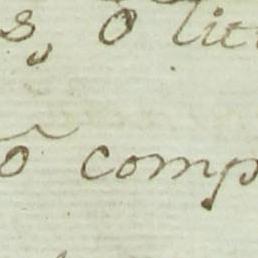 s, ó lit
õ comp